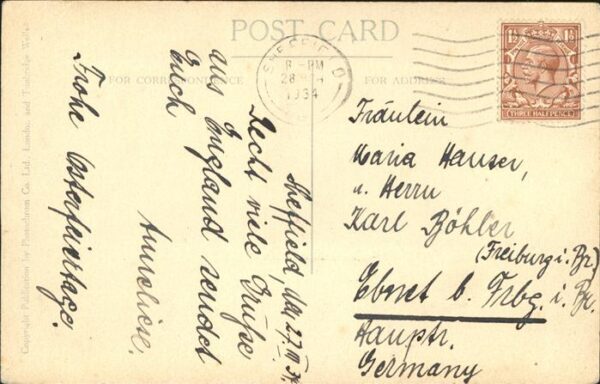 POST CARD
FOR CORRESPONDENCE
FOR ADDRESS
Copyright Publication by Photochrom Co. Ltd., London and Tunbridge Wells.
SHEFFIELD
8 - PM
28
1934
1½ 1½
THREE HALF PENCE
Sheffield, den 27. III 34.
Recht viele Grüße
aus England sendet
Euch
Anneliese.
Frohe Osterfeiertage.
Fräulein
Maria Hauser,
u. Herrn
Karl Böhler
(Freiburg i. Br.)
Ebnet b. Frbg. i. Br.
Hauptr.
Germany